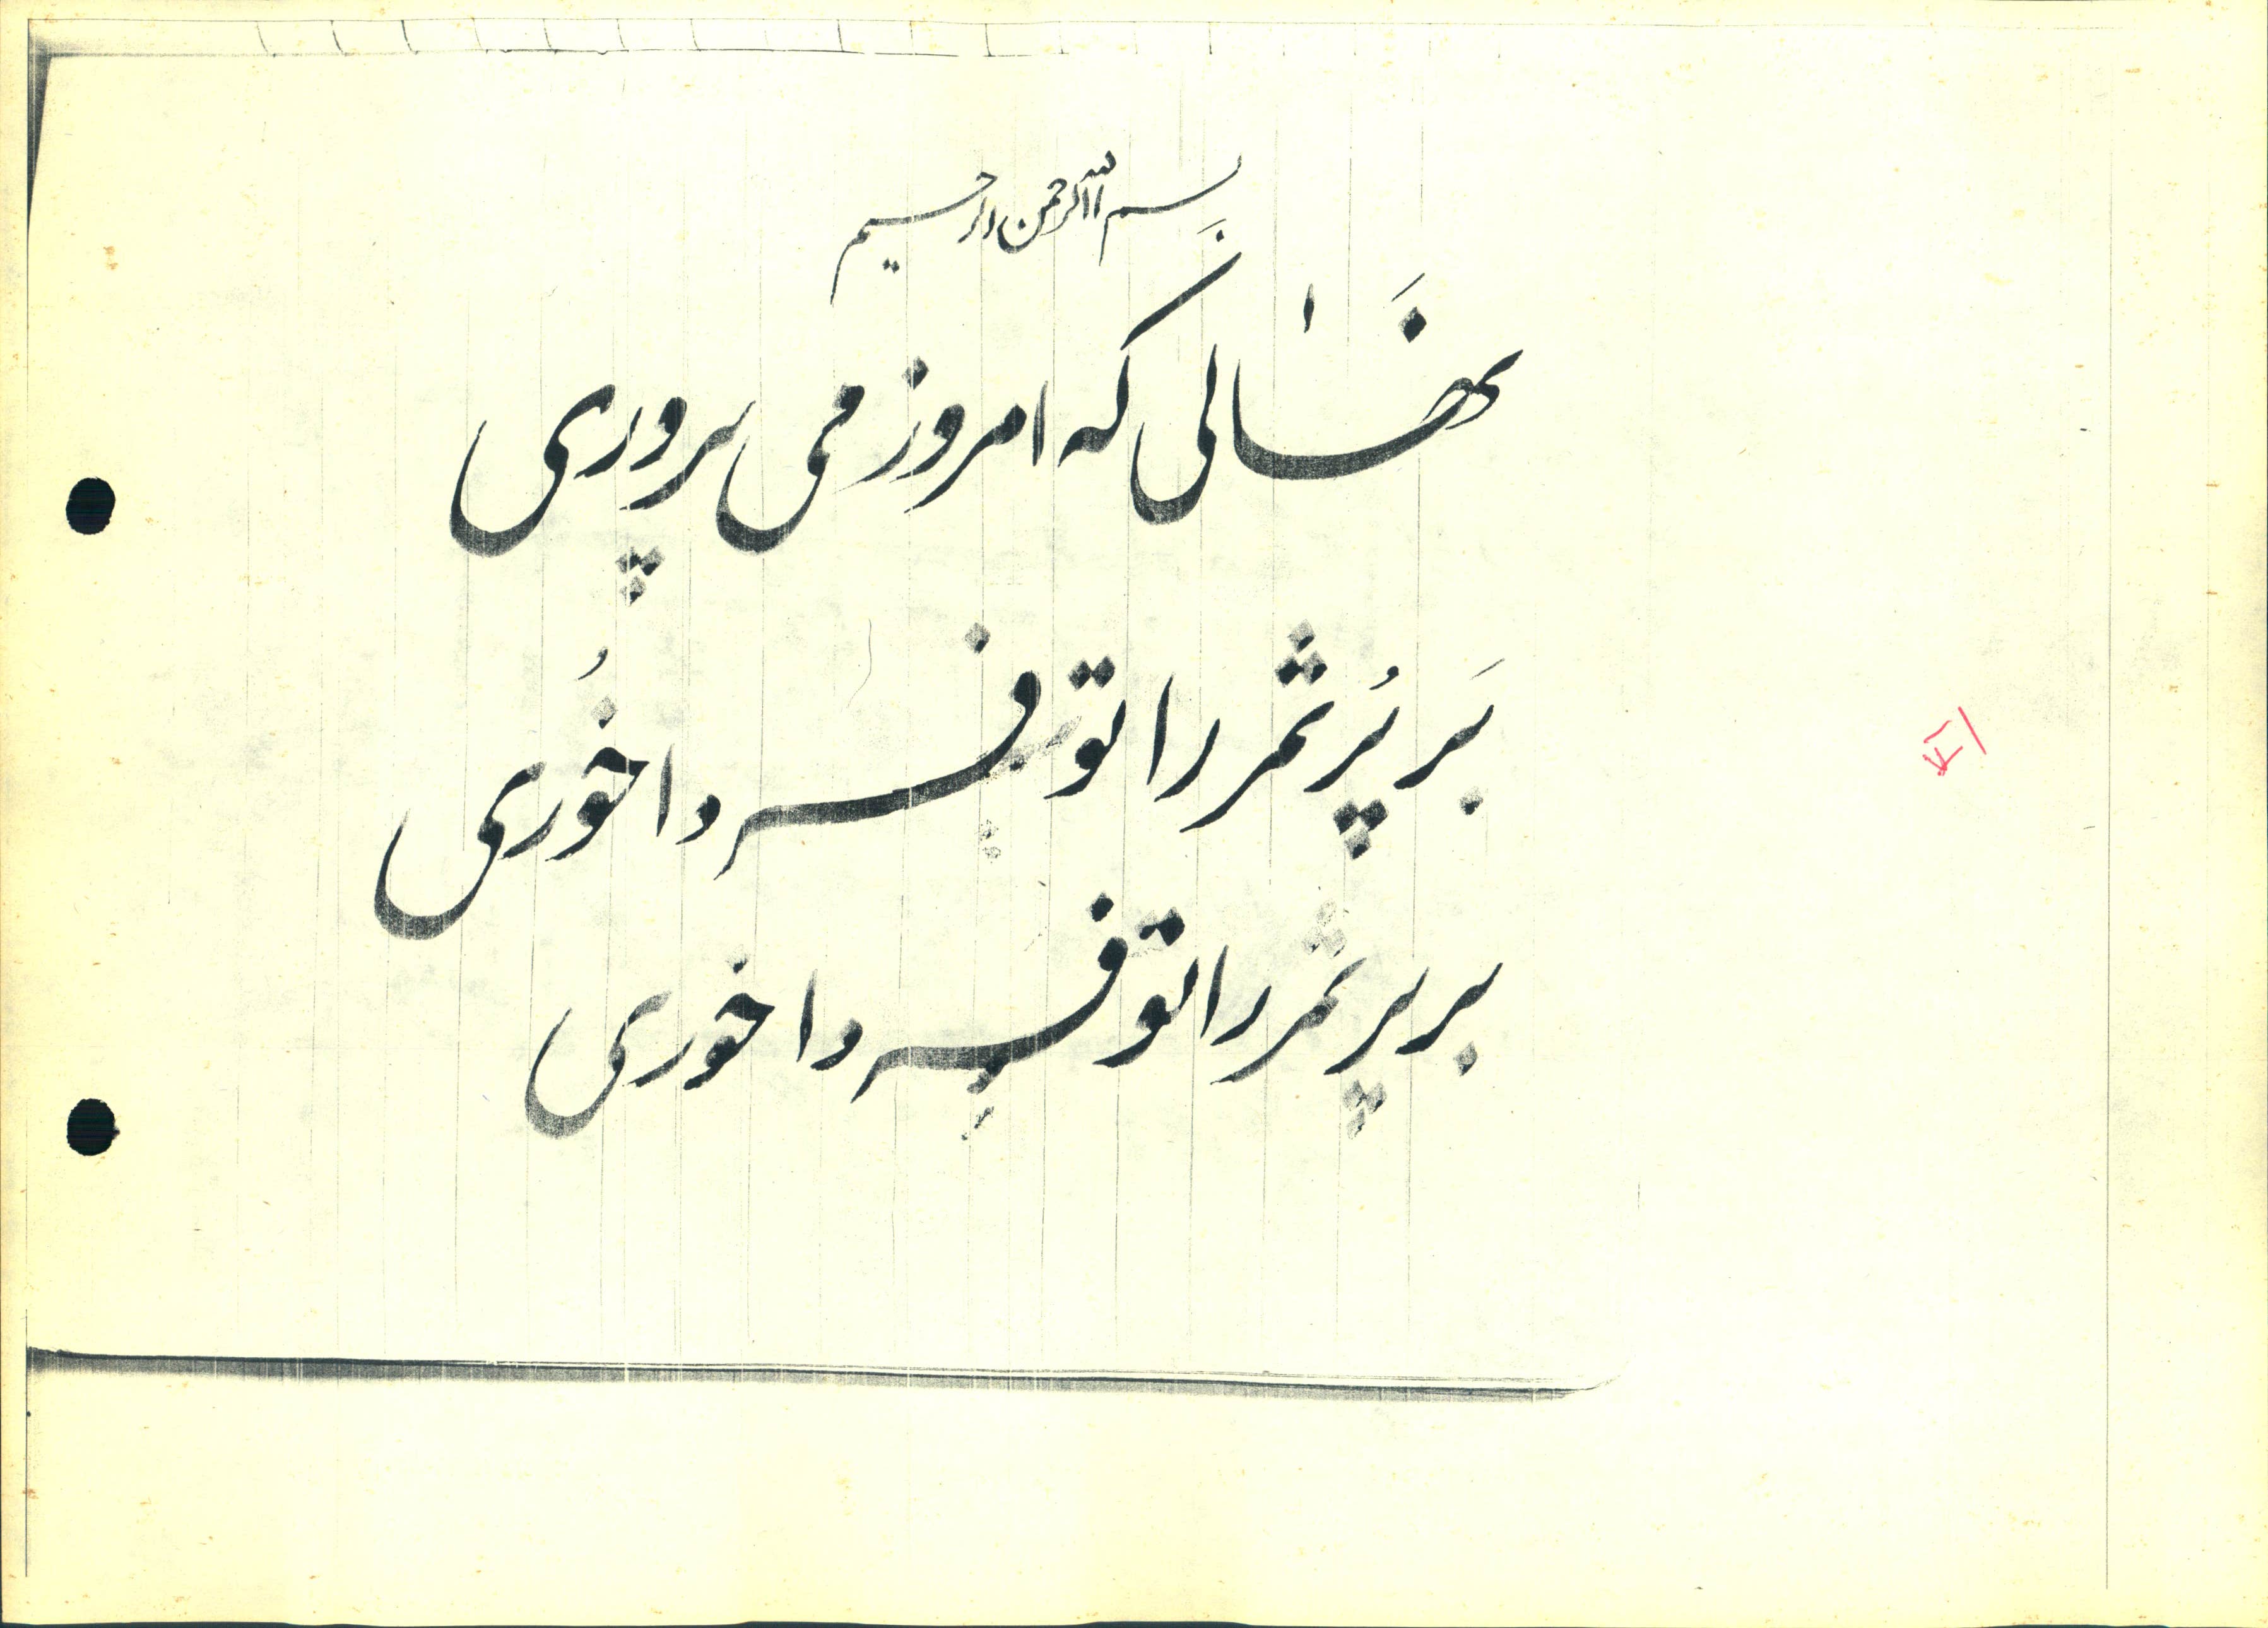 بسم الله الرحمن الرحیم
نَهٰالی که امروز می پروری
بَر پُر ثمر را تو فردا خُوری
بر پر ثمر را تو فردا خوری